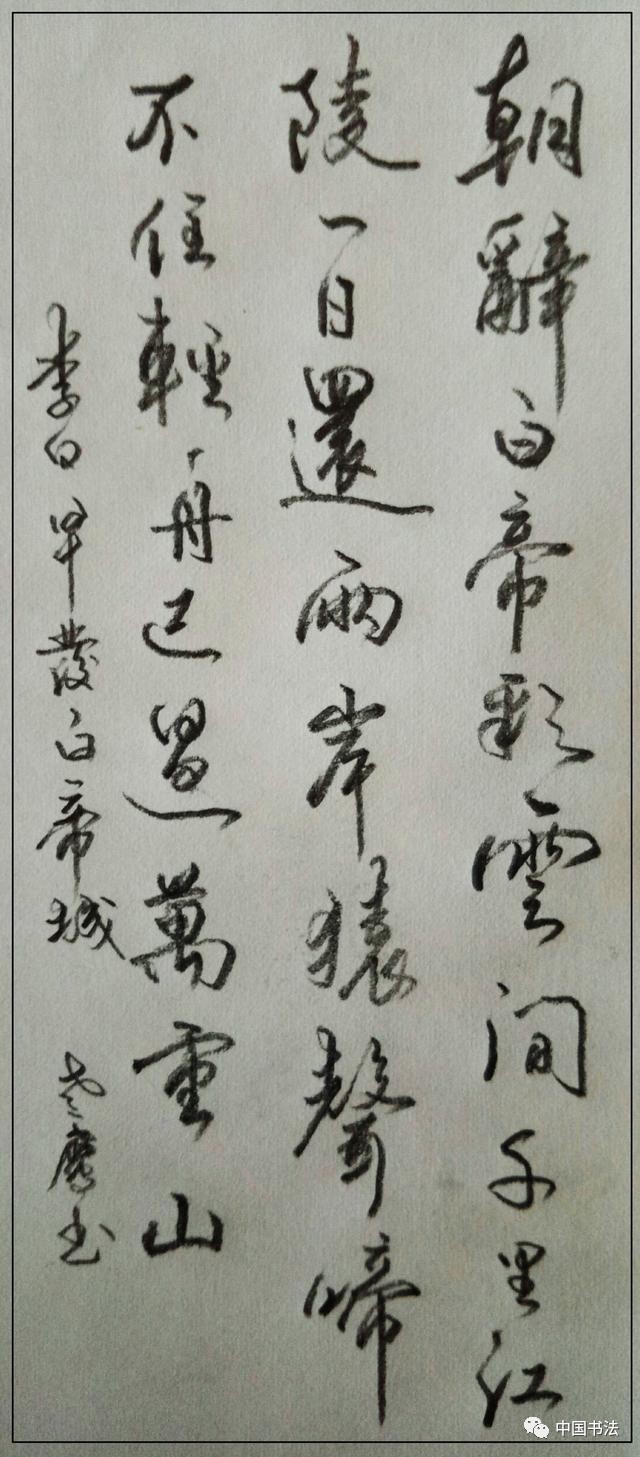 朝辭白帝彩雲间千里江
陵一日還兩岸猿聲啼
不住輕舟已過萬重山
李白早發白帝城
书
中国书法